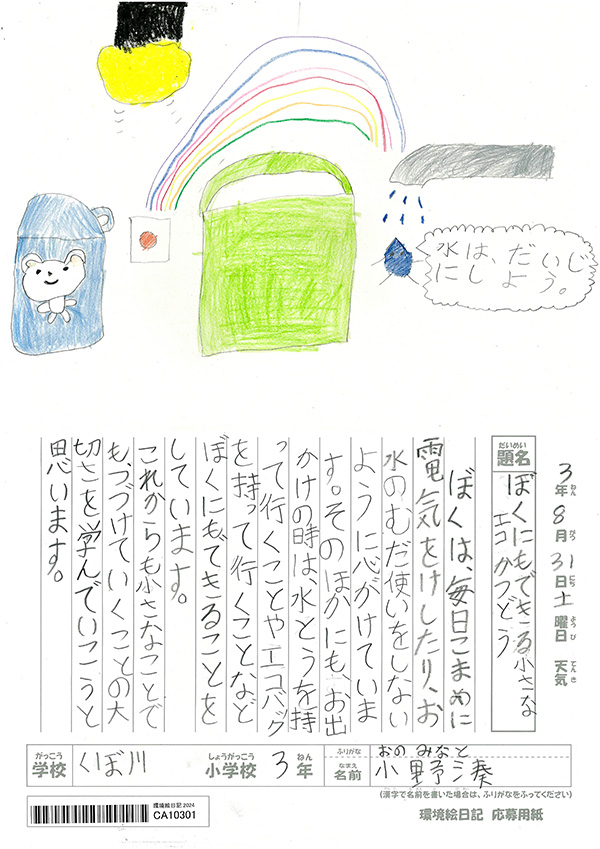 水は、だいじ
にしよう。
3年8月31日土曜日 天気
ねん がつ にち ようび てんき
だいめい
題名
ぼくにもできる小さな
エコかつどう
ぼくは、毎日こまめに
電気をけしたり、お
水のむだ使いをしない
ように心がけていま
す。そのほかにも、お出
かけの時は、水とうを持
って行くことやエコバッグ
を持って行くことなど
ぼくにもできることを
しています。
これからも小さなことで
も、つづけていくことの大
切さを学んでいこうと
思います。
がっこう しょうがっこう ねん
学校 くぼ川 小学校 3年
ふりがな おの みなと
なまえ
名前 小野湊
(漢字で名前を書いた場合は、ふりがなをふってください)
環境絵日記2024
CA10301
環境絵日記 応募用紙